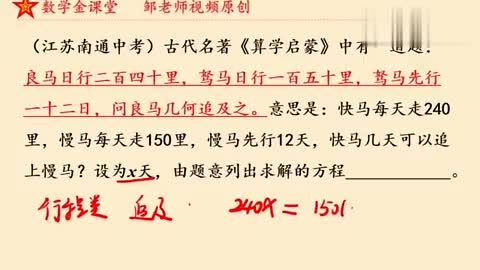 数学金课堂 邹老师视频原创
（江苏南通中考）古代名著《算学启蒙》中有一道题：
良马日行二百四十里，驽马日行一百五十里，驽马先行
一十二日，问良马几何追及之。意思是：快马每天走240
里，慢马每天走150里，慢马先行12天，快马几天可以追
上慢马？设为x天，由题意列出求解的方程____________。
行程类 追及 240x = 150(